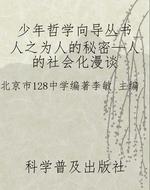 少年哲学向导丛书
人之为人的秘密—人
的社会化漫谈
北京市128中学编著李敏 主编
科学普及出版社